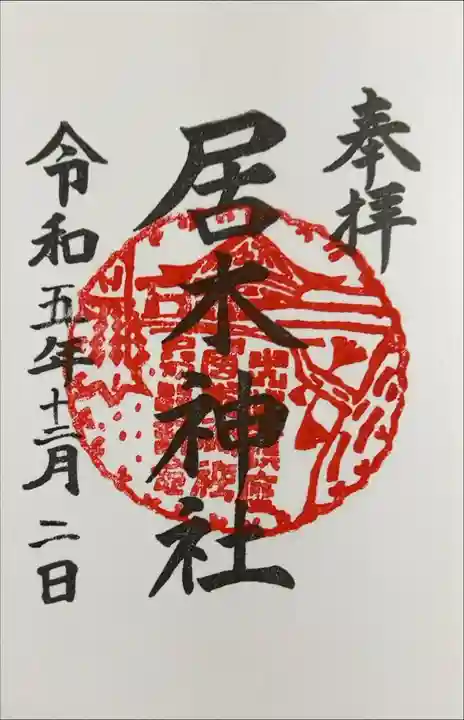 奉拝
居木神社
令和五年十二月二日